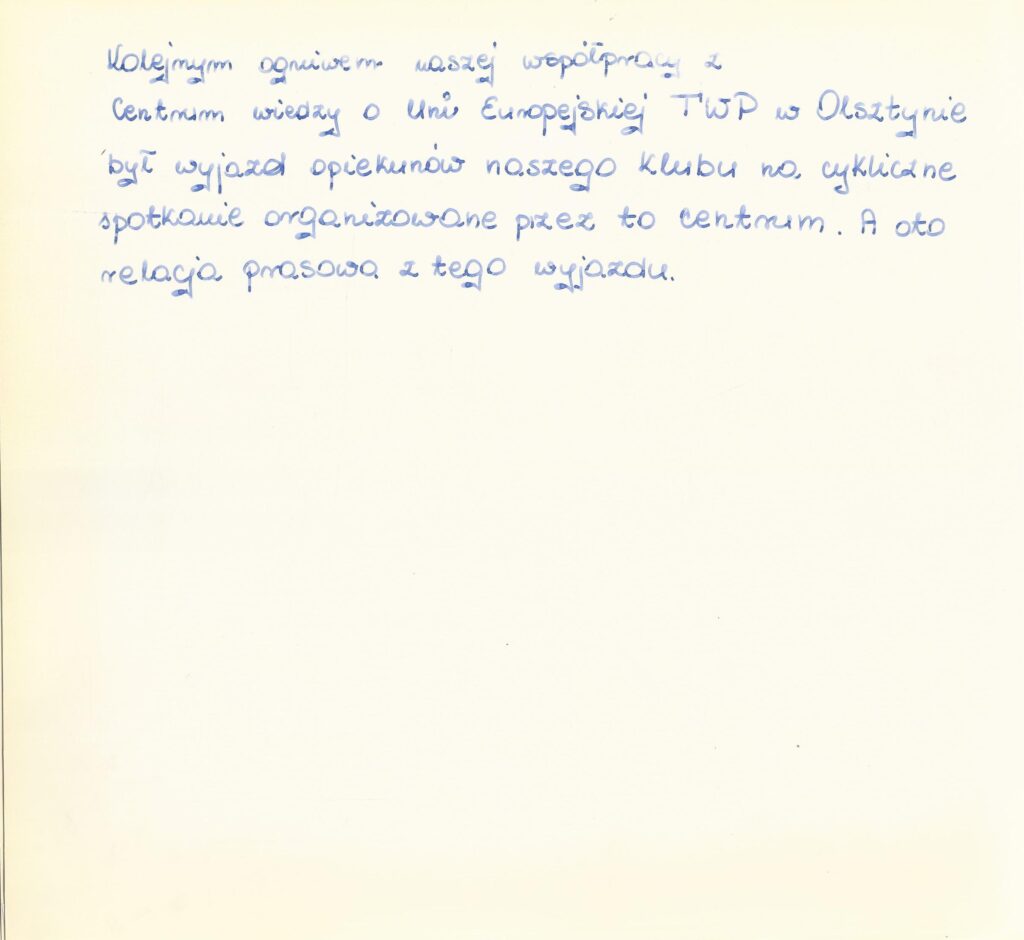 Kolejnym ogniwem naszej współpracy z
Centrum wiedzy o Unii Europejskiej TWP w Olsztynie
był wyjazd opiekunów naszego klubu na cykliczne
spotkanie organizowane przez to centrum. A oto
relacja prasowa z tego wyjazdu.